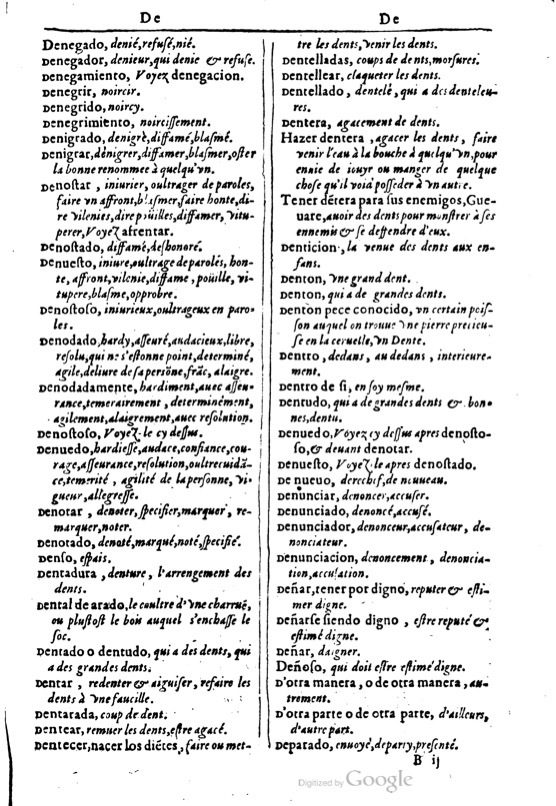 De
Denegado, denié, refusé, nié.
Denegador, denieur, qui denie & refuse.
Denegamiento, Voyez denegacion.
Denegrir, noircir.
Denegrido, noircy.
Denegrimiento, noircissement.
Denigrado, denigrè, diffamé, blasmé.
Denigrar, dénigrer, diffamer, blasmer, oster
la bonne renommee à quelqu'vn.
Denostar, iniurier, oultrager de paroles,
faire vn affront, blasmer, faire honte, di-
re vilenies, dire poüilles, diffamer, vitu-
perer, Voyez afrentar.
Denostado, diffamé, deshonoré.
Denuesto, iniure, oultrage de parolés, hon-
te, affront, vilenie, diffame, poüille, vi-
tupere, blasme, opprobre.
Denostoso, iniurieux, oultrageux en paro-
les.
Denodado, hardy, asseuré, audacieux, libre,
resolu, qui ne s'estonne point, determiné,
agile, deliure de sa persõne, frãc, alaigre.
Denodadamente, hardiment, auec asseu-
rance, temerairement, determinément,
agilement, alaigrement, auec resolution.
Denostoso, Voyez le cy dessus.
Denuedo, hardiesse, audace, confiance, cou-
rage, asseurance, resolution, oultrecuidã-
ce, temerité, agilité de la personne, vi-
gueur, allegresse.
Denotar, denoter, specifier, marquer, re-
marquer, noter.
Denotado, denoté, marqué, noté, specifié.
Denso, espais.
Dentadura, denture, l'arrengement des
dents.
Dental de arado, le coultre d'vne charruë,
ou plustost le bois auquel s'enchasse le
soc.
Dentado o dentudo, qui a des dents, qui
a des grandes dents.
Dentar, redenter & aiguiser, refaire les
dents à vne faucille.
Dentarada, coup de dent.
Dentear, remuer les dents, estre agacé.
Dentecer, nacer los diétes, faire ou met-
De
tre les dents, venir les dents.
Dentelladas, coups de dents, morsures.
Dentellear, claqueter les dents.
Dentellado, dentelé, qui a des denteleu-
res.
Dentera, agacement de dents.
Hazer dentera, agacer les dents, faire
venir l'eau à la bouche à quelqu'vn, pour
enuie de iouyr ou manger de quelque
chose qu'il void posseder à vn autre.
Tener détera para sus enemigos, Gue-
uare, auoir des dents pour monstrer à ses
ennemis & se deffendre d'eux.
Denticion, la venue des dents aux en-
fans.
Denton, vne grand dent.
Denton, qui a de grandes dents.
Denton pece conocido, vn certain pois-
son auquel on trouue vne pierre precieu-
se en la ceruelle, vn Dente.
Dentro, dedans, au dedans, interieure-
ment.
Dentro de si, en soy mesme.
Dentudo, qui a de grandes dents & bon-
nes, dentu.
Denuedo, Voyez cy dessus apres denosto-
so, & deuant denotar.
Denuesto, Voyez le apres denostado.
De nueuo, derechef, de nouueau.
Denunciar, denoncer, accuser.
Denunciado, denoncé, accusé.
Denunciador, denonceur, accusateur, de-
nonciateur.
Denunciacion, denoncement, denoncia-
tion, accusation.
Deñar, tener por digno, reputer & esti-
mer digne.
Deñarse siendo digno, estre reputé &
estimé digne.
Deñar, daigner.
Deñoso, qui doit estre estimé digne.
D'otra manera, o de otra manera, au-
trement.
D'otra parte o de otra parte, d'ailleurs,
d'autre part.
Deparado, enuoyé, deparry, presenté.
B ij
Digitized by Google